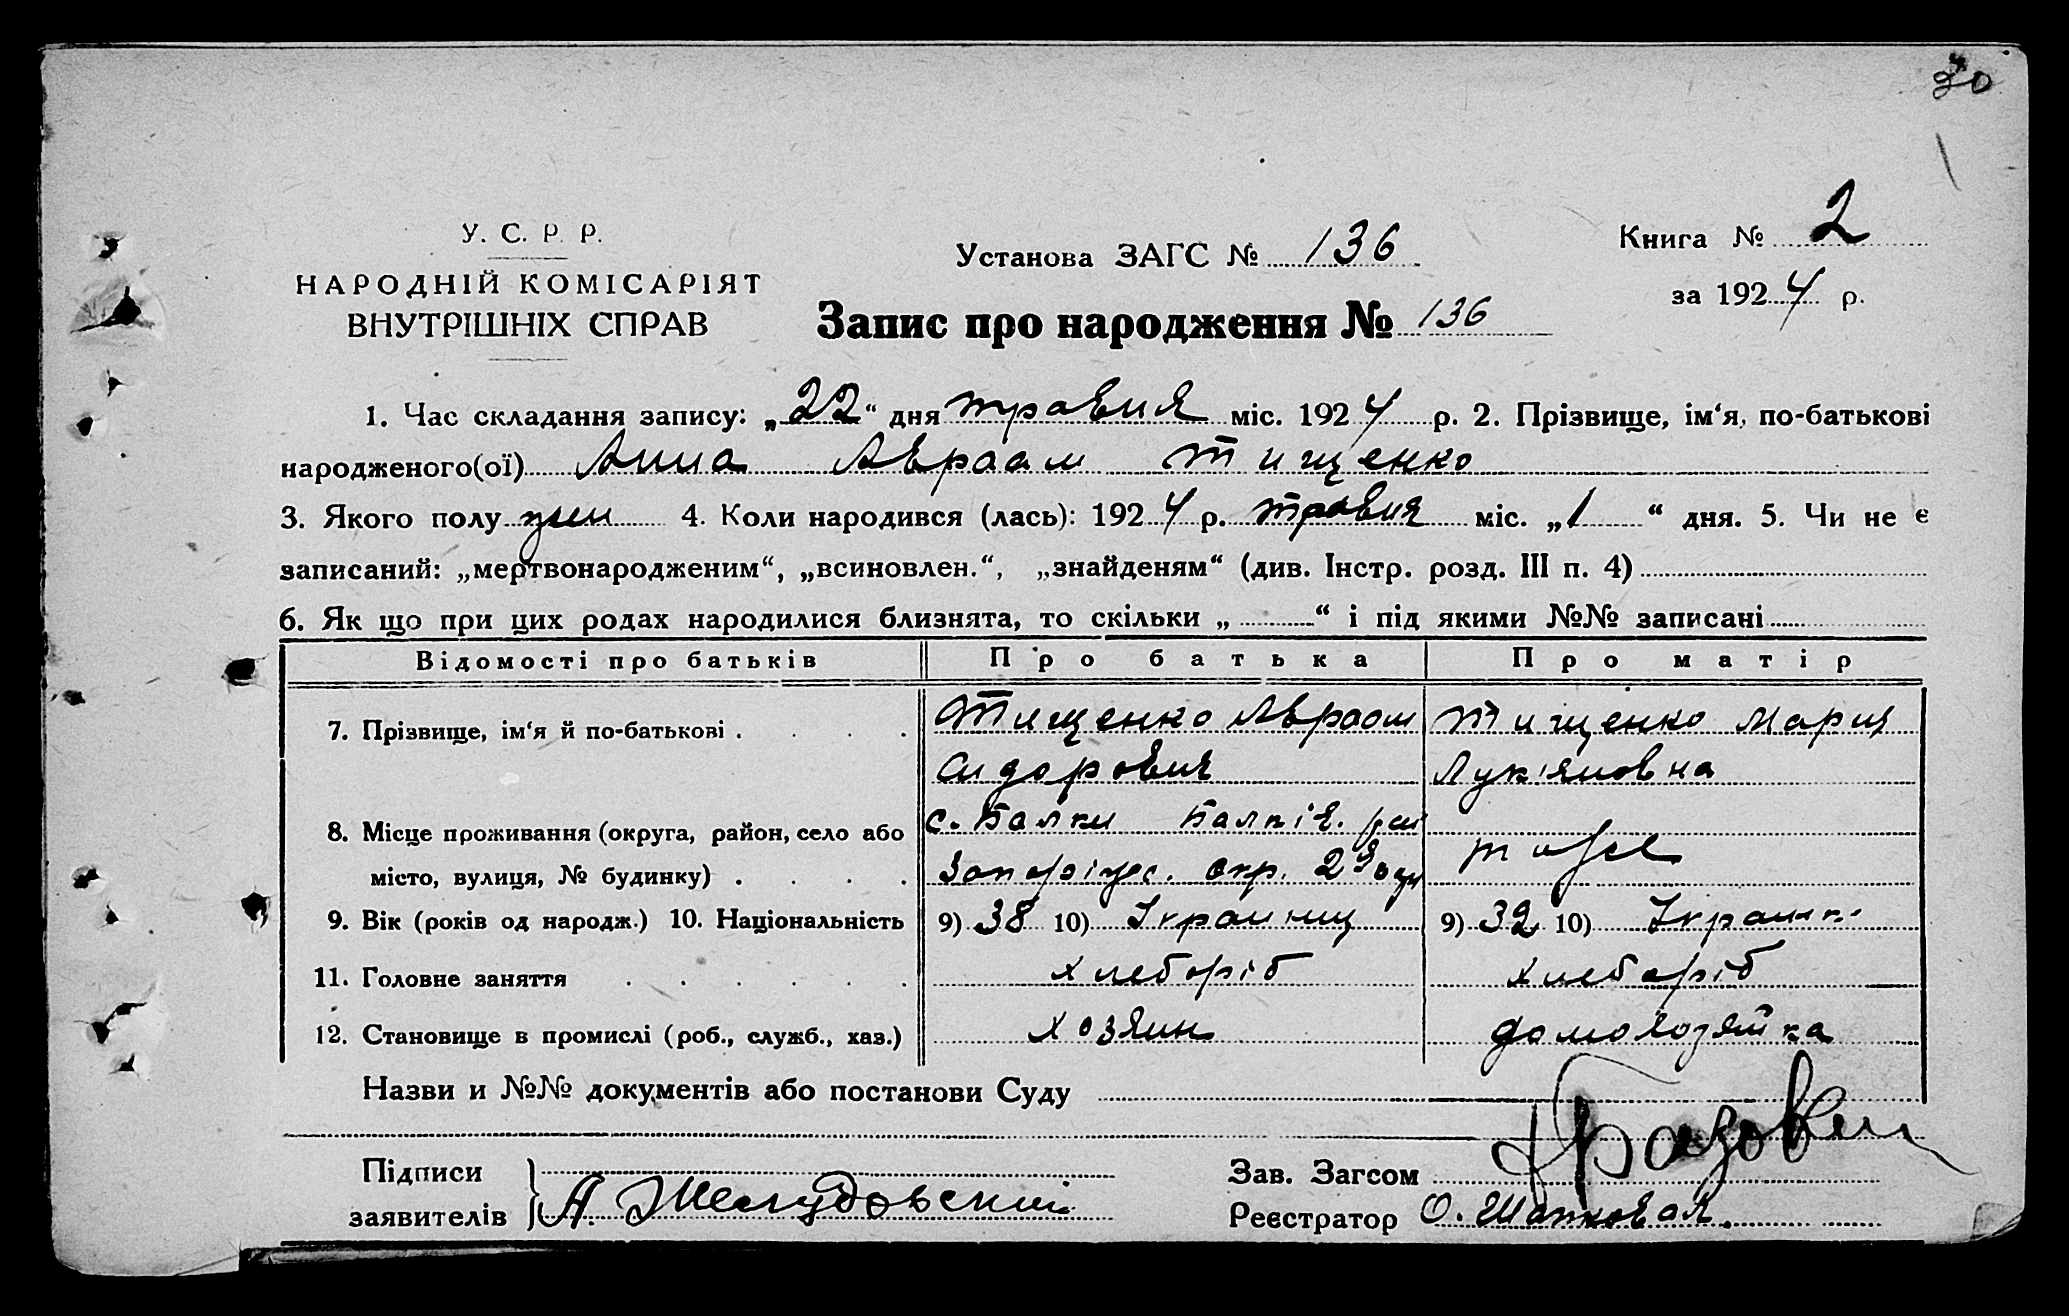 30
У. С. Р. Р.
НАРОДНІЙ КОМІСАРІЯТ
ВНУТРІШНІХ СПРАВ
Установа ЗАГС № 136
Книга № 2
за 1924 р.
Запис про народження № 136
1. Час складання запису: „22“ дня травня міс. 1924 р. 2. Прізвище, ім‘я, по-батькові
народженого(ої) Анна Авраам Тищенко
3. Якого полу жен 4. Коли народився (лась): 1924 р. травня міс. „1“ дня. 5. Чи не є
записаний: „мертвонародженим“, „всиновлен.“, „знайденям“ (див. Інстр. розд. III п. 4)
6. Як що при цих родах народилися близнята, то скільки „ “ і під якими №№ записані
Відомості про батьків Про батька Про матір
7. Прізвище, ім‘я й по-батькові Тищенко Авраам Тищенко Мария
Сидорович Лук'яновна
8. Місце проживання (округа, район, село або с. Балки Балків. рай
місто, вулиця, № будинку) Запоріжс. окр. тоже
9. Вік (років од народж.) 10. Національність 9) 38 10) Украинец 9) 32 10) Украинк.
11. Головне заняття хлеборіб хлеборіб
12. Становище в промислі (роб., служб., хаз.) хозяин домохозяйка
Назви и №№ документів або постанови Суду
Підписи
заявителів А. Желудовский
Зав. Загсом
Реєстратор О. Шапковая.